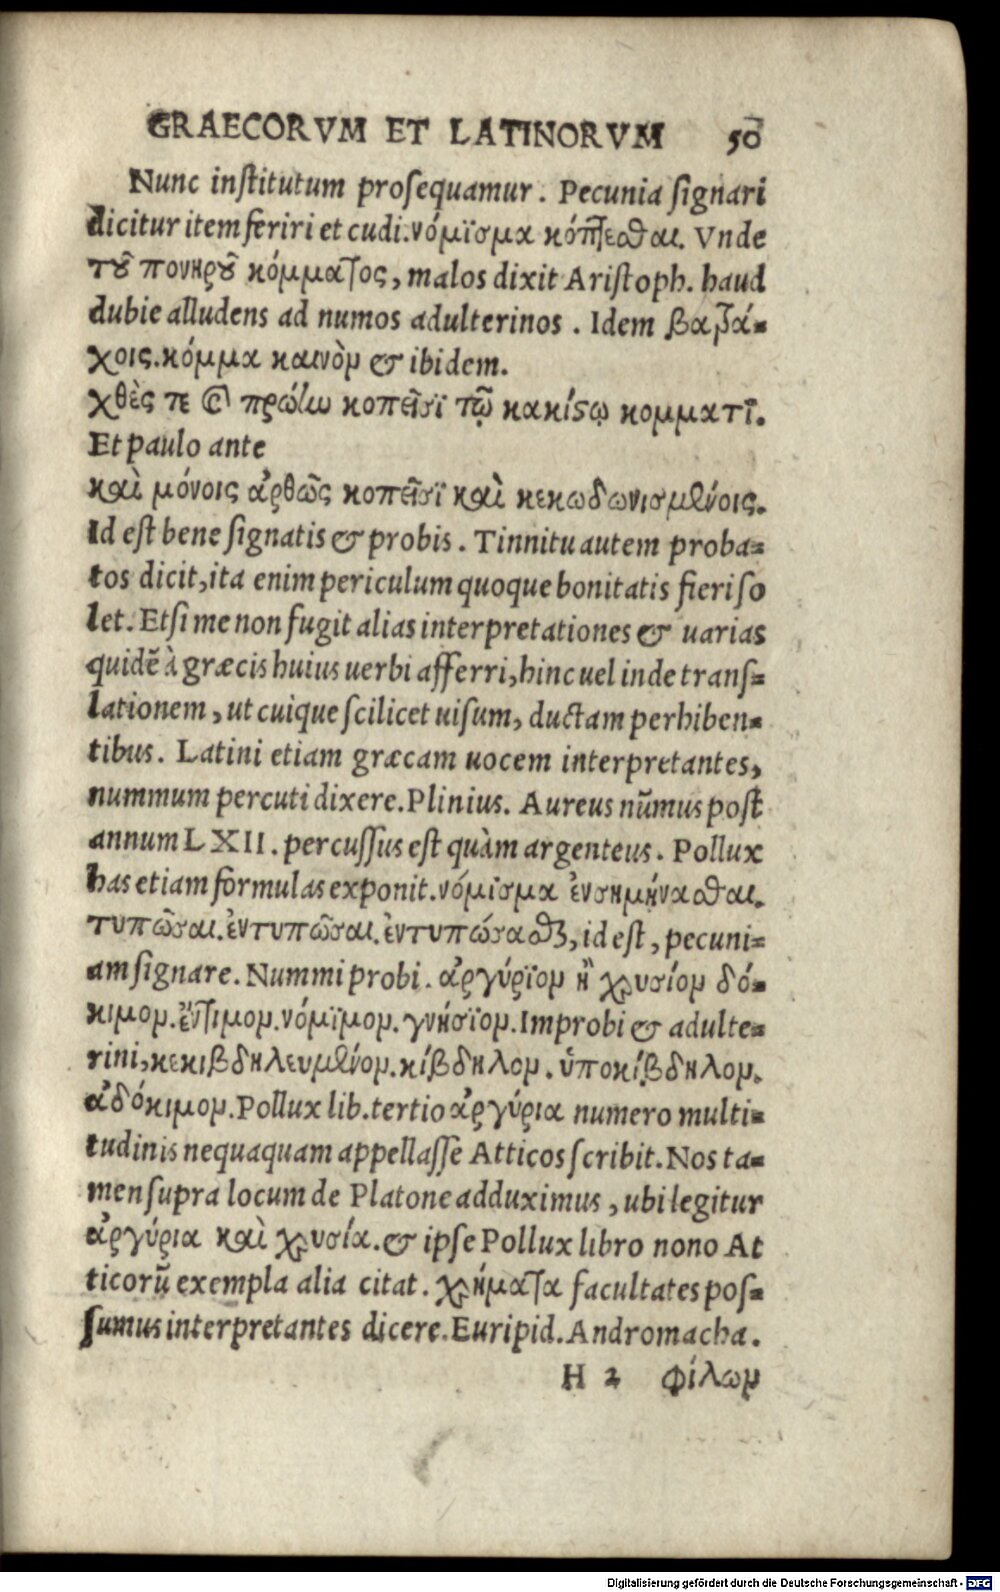 GRAECORVM ET LATINORVM 50
Nunc institutum prosequamur. Pecunia signari
dicitur item feriri et cudi. νόμϊσμα κόπτεσθαι. Vnde
τοῦ πονηροῦ κόμματος, malos dixit Aristoph. haud
dubie alludens ad numos adulterinos. Idem βατρά-
χοις. κόμμα καινὸν & ibidem.
χθὲς τε καὶ πρώιω κοπεῖσϊ τῷ κακίστῳ κομματϊ.
Et paulo ante
καὶ μόνοις ἀρθῶς κοπεῖσϊ καὶ κεκωδωνισμένοις.
Id est bene signatis & probis. Tinnitu autem proba-
tos dicit, ita enim periculum quoque bonitatis fieri so
let. Etsi me non fugit alias interpretationes & uarias
quidẽ à græcis huius uerbi afferri, hinc uel inde trans-
lationem, ut cuique scilicet uisum, ductam perhiben-
tibus. Latini etiam græcam uocem interpretantes,
nummum percuti dixere. Plinius. Aureus nũmus post
annum LXII. percussus est quàm argenteus. Pollux
has etiam formulas exponit. νόμισμα ἐνσημήνασθαι.
τυπῶσαι. ἐντυπῶσαι. ἐντυπώσασθαι, id est, pecuni-
am signare. Nummi probi. ἀργύρϊον ἢ χρυσίον δό-
κιμον. ἔντιμον. νόμϊμον. γνήσϊον. Improbi & adulte-
rini, κεκιβδηλευμένον. κίβδηλον. ὑποκίβδηλον.
ἀδόκιμον. Pollux lib. tertio ἀργύρια numero multi-
tudinis nequaquam appellasse Atticos scribit. Nos ta-
men supra locum de Platone adduximus, ubi legitur
ἀργύρια καὶ χρυσία. & ipse Pollux libro nono At
ticorũ exempla alia citat. χρήματα facultates pos-
sumus interpretantes dicere. Euripid. Andromacha.
H 2 φίλων
Digitalisierung gefördert durch die Deutsche Forschungsgemeinschaft - DFG